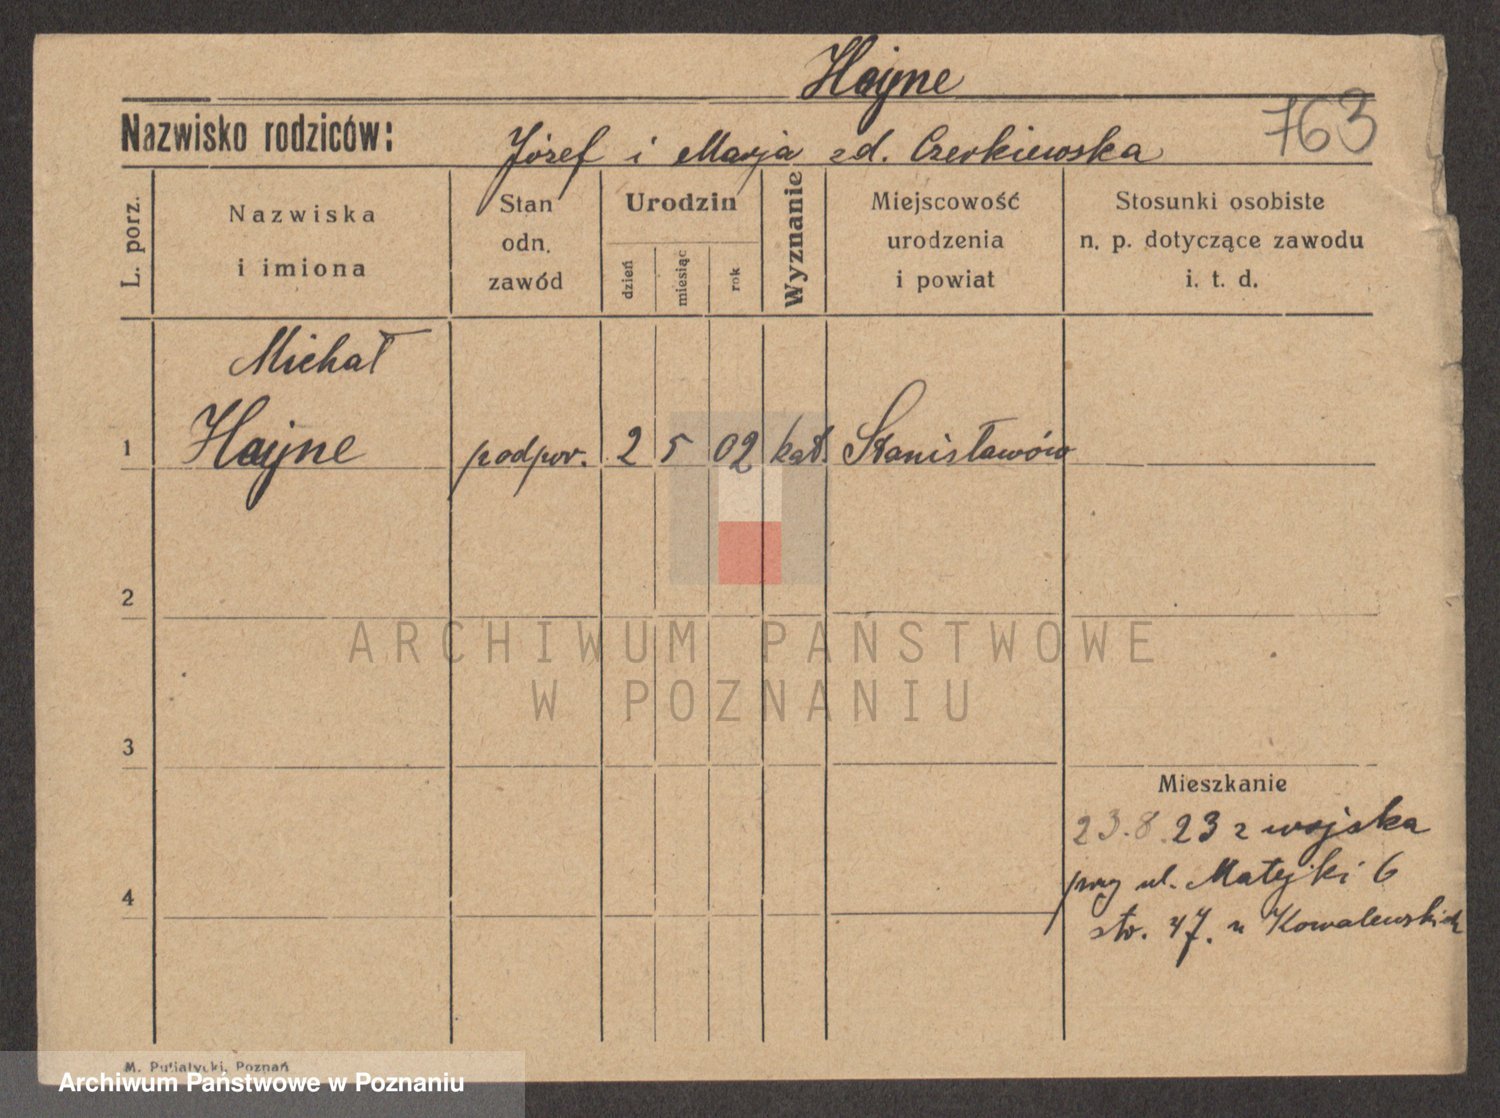 Hayne
763
Nazwisko rodziców: Józef i Marja zd. Czerkiewska
L. porz.
Nazwiska
i imiona
Stan
odn.
zawód
Urodzin
dzień
miesiąc
rok
Wyznanie
Miejscowość
urodzenia
i powiat
Stosunki osobiste
n. p. dotyczące zawodu
i. t. d.
Michał
1 Hayne podpor. 2 5 02 kat. Stanisławów
2
ARCHIWUM PAŃSTWOWE
W POZNANIU
3
Mieszkanie
23.8.23 z wojska
przy ul. Matejki 6
4
str. 47. u Kowalewskich
M. Putiatycki, Poznań
Archiwum Państwowe w Poznaniu